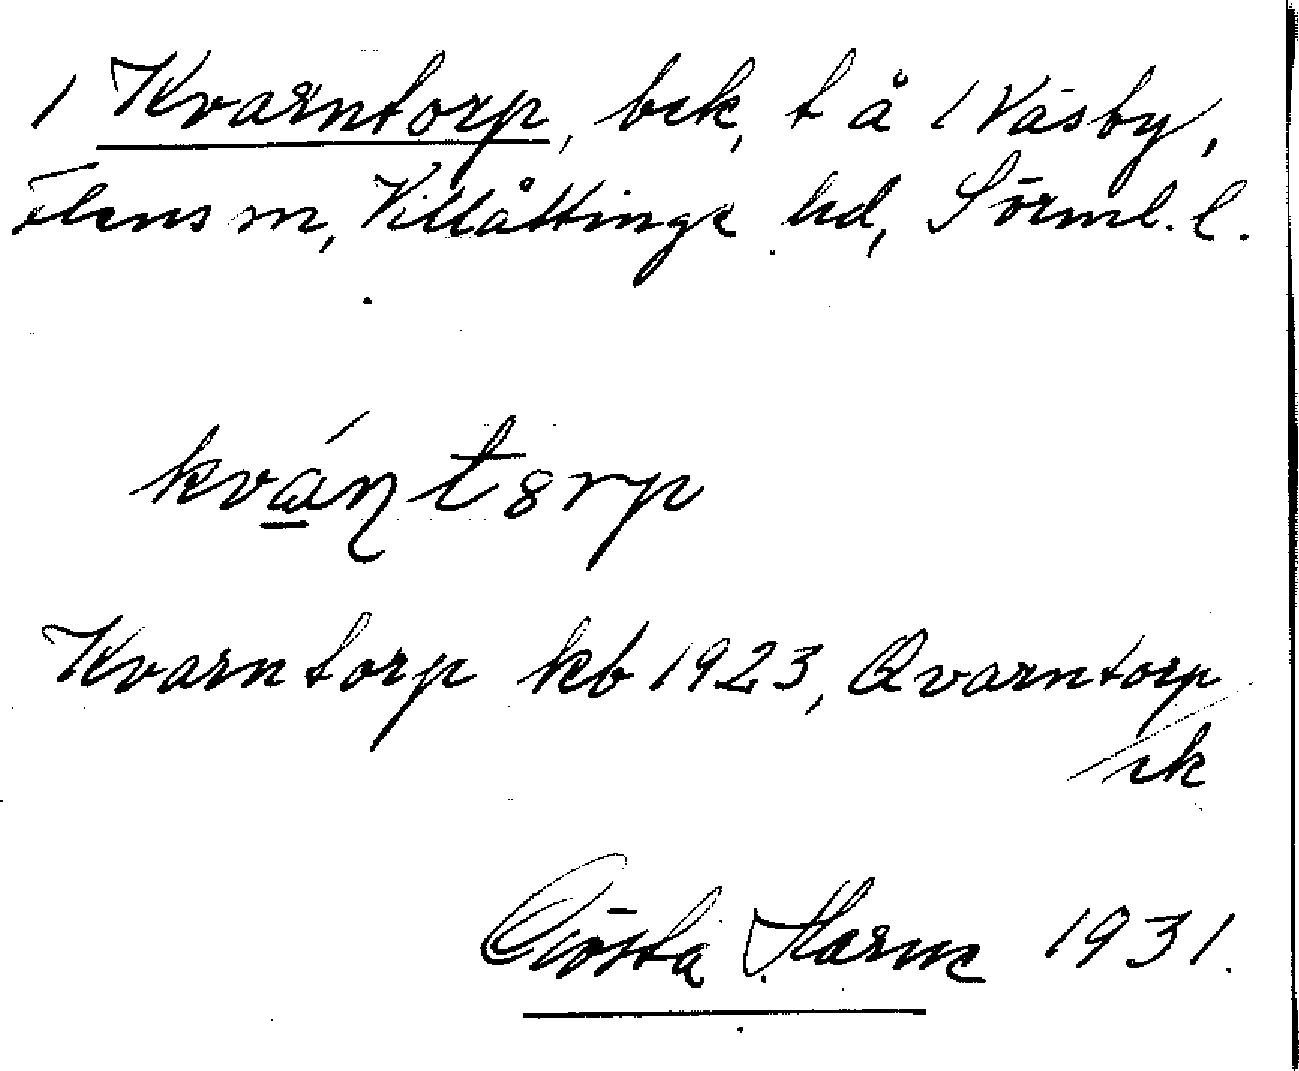 1 Kvarntorp, bek, t å 1 Väsby,
Flens sn, Villåttinge hd, Sörml. l.
kvántorp
Kvarntorp kb 1923, Qvarntorp
ek
Gösta Harne 1931.